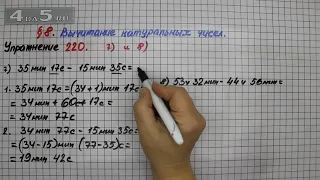 4APO5.RU
§8. Вычитание натуральных чисел.
Упражнение 220. 7) и 8)
7) 35 мин 17с - 15 мин 35с =
1. 35 мин 17с = (34+1) мин 17с
= 34 мин + 60с + 17с =
= 34 мин 77с
2. 34 мин 77с - 15 мин 35с =
= (34-15) мин (77-35)с =
= 19 мин 42с
8) 53ч 32 мин - 44ч 56 мин =